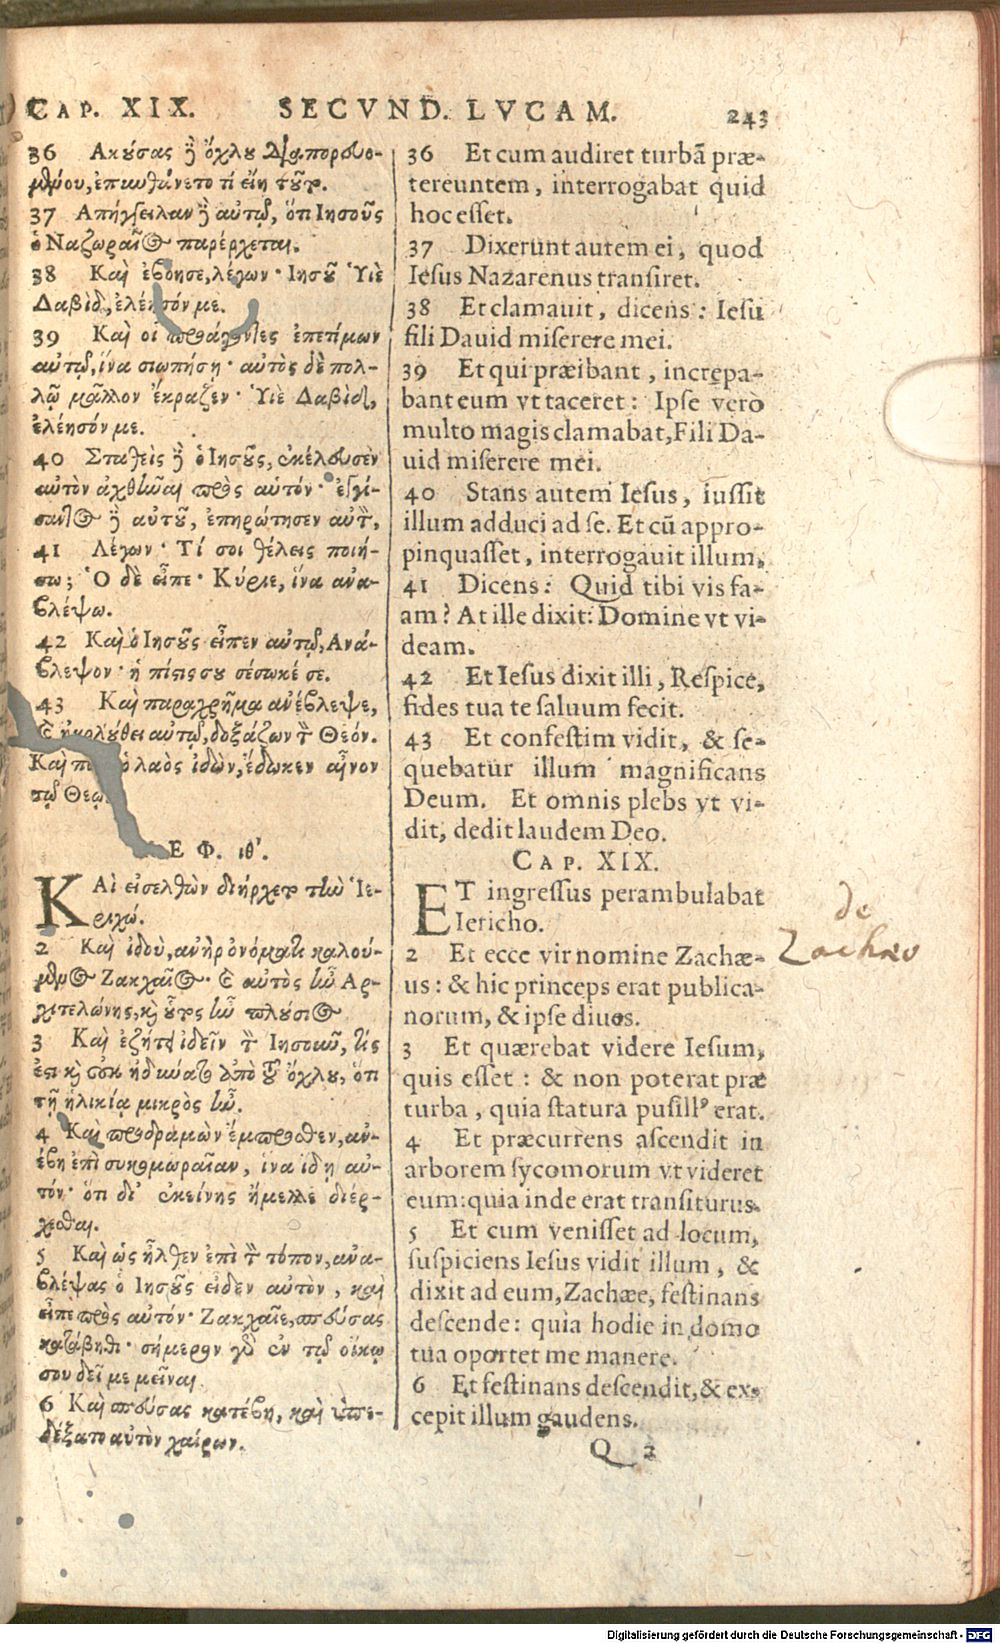 CAP. XIX. SECVND. LVCAM. 243
36 Ακούσας δὲ ὄχλου διαπορευο-
μένου, ἐπυνθάνετο τί εἴη τοῦτο.
37 Απήγγειλαν δὲ αὐτῷ, ὅτι Ιησοῦς
ὁ Ναζωραῖος παρέρχεται.
38 Καὶ ἐβόησε, λέγων· Ιησοῦ Υἱὲ
Δαβὶδ, ἐλέησόν με.
39 Καὶ οἱ προάγοντες ἐπετίμων
αὐτῷ, ἵνα σιωπήσῃ· αὐτὸς δὲ πολ-
λῷ μᾶλλον ἔκραζεν· Υἱὲ Δαβὶδ,
ἐλέησόν με.
40 Σταθεὶς δὲ ὁ Ιησοῦς, ἐκέλευσεν
αὐτὸν ἀχθῆναι πρὸς αὑτόν· ἐγγί-
σαντος δὲ αὐτοῦ, ἐπηρώτησεν αὐτὸν,
41 Λέγων· Τί σοι θέλεις ποιή-
σω; Ὁ δὲ εἶπε· Κύριε, ἵνα ἀνα-
βλέψω.
42 Καὶ ὁ Ιησοῦς εἶπεν αὐτῷ, Ανά-
βλεψον· ἡ πίστις σου σέσωκέ σε.
43 Καὶ παραχρῆμα ἀνέβλεψε,
καὶ ἠκολούθει αὐτῷ, δοξάζων τὸν Θεόν.
Καὶ ὁ λαὸς ἰδὼν, ἔδωκεν αἶνον
τῷ Θεῷ.
ΕΦ. ιθ'.
ΚΑὶ εἰσελθὼν διήρχετο τὴν Ἱε-
ριχώ.
2 Καὶ ἰδοὺ, ἀνὴρ ὀνόματι καλού-
μενος Ζακχαῖος· καὶ αὐτὸς ἦν Αρ-
χιτελώνης, καὶ οὗτος ἦν πλούσιος
3 Καὶ ἐζήτει ἰδεῖν τὸν Ιησοῦν, τίς
ἐστι καὶ οὐκ ἠδύνατο ἀπὸ τοῦ ὄχλου, ὅτι
τῇ ἡλικίᾳ μικρὸς ἦν.
4 Καὶ προδραμὼν ἔμπροσθεν, ἀν-
έβη ἐπὶ συκομωραῖαν, ἵνα ἴδῃ αὐ-
τόν· ὅτι δι' ἐκείνης ἤμελλε διέρ-
χεσθαι.
5 Καὶ ὡς ἦλθεν ἐπὶ τὸν τόπον, ἀνα-
βλέψας ὁ Ιησοῦς εἶδεν αὐτὸν, καὶ
εἶπε πρὸς αὐτόν· Ζακχαῖε, σπεύσας
κατάβηθι· σήμερον γὰρ ἐν τῷ οἴκῳ
σου δεῖ με μεῖναι
6 Καὶ σπεύσας κατέβη, καὶ ὑπε-
δέξατο αὐτὸν χαίρων.
36 Et cum audiret turbã præ-
tereuntem, interrogabat quid
hoc esset.
37 Dixerunt autem ei, quod
Iesus Nazarenus transiret.
38 Et clamauit, dicens: Iesu
fili Dauid miserere mei.
39 Et qui præibant, increpa-
bant eum vt taceret: Ipse verò
multo magis clamabat, Fili Da-
uid miserere mei.
40 Stans autem Iesus, iussit
illum adduci ad se. Et cũ appro-
pinquasset, interrogauit illum,
41 Dicens: Quid tibi vis fa-
am? At ille dixit: Domine vt vi-
deam.
42 Et Iesus dixit illi, Respice,
fides tua te saluum fecit.
43 Et confestim vidit, & se-
quebatur illum magnificans
Deum. Et omnis plebs vt vi-
dit, dedit laudem Deo.
CAP. XIX.
ET ingressus perambulabat
Iericho.
2 Et ecce vir nomine Zachæ-
us: & hic princeps erat publica-
norum, & ipse diues.
3 Et quærebat videre Iesum,
quis esset: & non poterat præ
turba, quia statura pusillꝰ erat.
4 Et præcurrens ascendit in
arborem sycomorum vt videret
eum: quia inde erat transiturus.
5 Et cum venisset ad locum,
suspiciens Iesus vidit illum, &
dixit ad eum, Zachæe, festinans
descende: quia hodie in domo
tua oportet me manere.
6 Et festinans descendit, & ex-
cepit illum gaudens.
Q 2
de
Zachæo
Digitalisierung gefördert durch die Deutsche Forschungsgemeinschaft - DFG